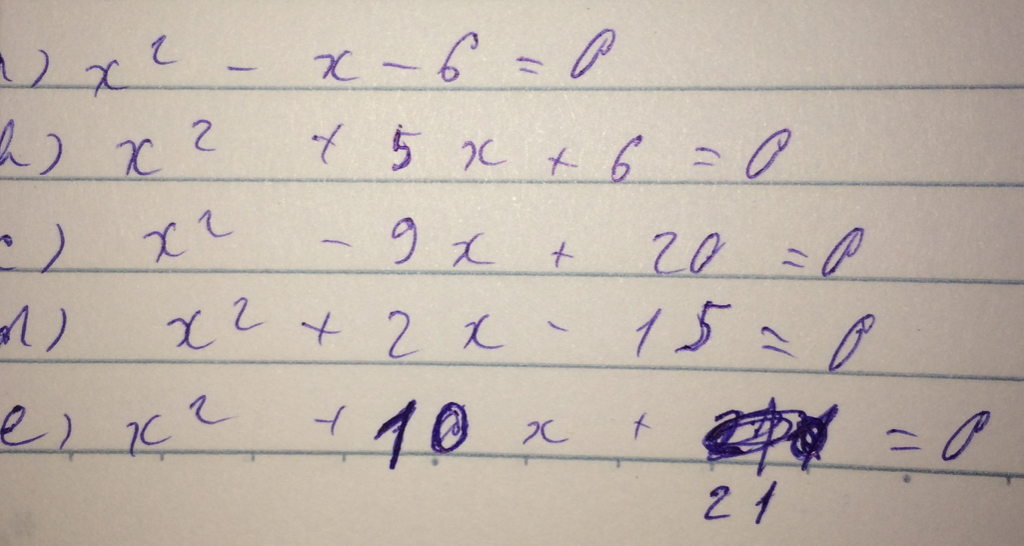 a) x² - x - 6 = 0
b) x² + 5x + 6 = 0
c) x² - 9x + 20 = 0
d) x² + 2x - 15 = 0
e) x² + 10x + = 0
21